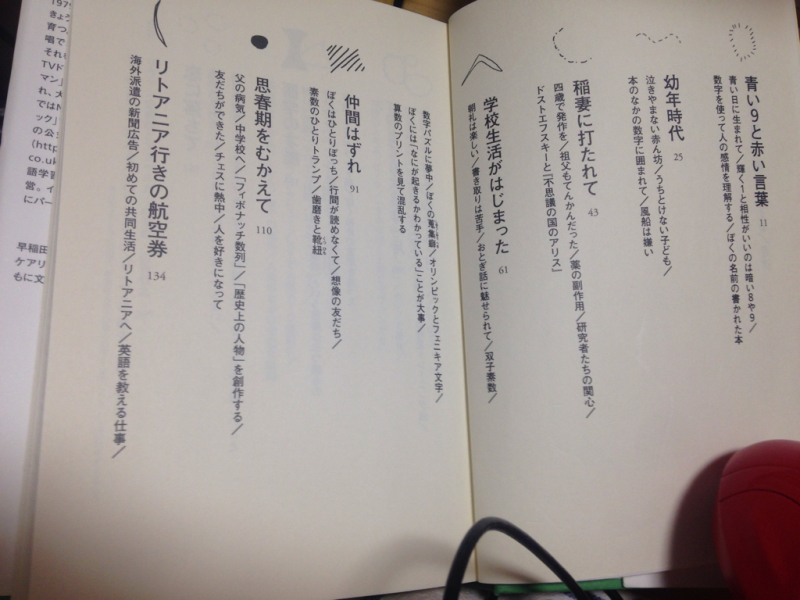 青い9と赤い言葉 11
青い日に生まれて／輝く1と相性がいいのは暗い8や9／
数字を使って人の感情を理解する／ぼくの名前の書かれた本
幼年時代 25
泣きやまない赤ん坊／うちとけない子ども／
本のなかの数字に囲まれて／風船は嫌い
稲妻に打たれて 43
四歳で発作を／祖父もてんかんだった／薬の副作用／研究者たちの関心／
ドストエフスキーと『不思議の国のアリス』
学校生活がはじまった 61
朝礼は楽しい／書き取りは苦手／おとぎ話に魅せられて／双子素数／
数字パズルに夢中／ぼくの蒐集癖／オリンピックとフェニキア文字／
ぼくには「なにが起きるかわかっている」ことが大事／
算数のプリントを見て混乱する
仲間はずれ 91
ぼくはひとりぼっち／行間が読めなくて／想像の友だち／
素数のひとりトランプ／歯磨きと靴紐
思春期をむかえて 110
父の病気／中学校へ／「フィボナッチ数列」／「歴史上の人物」を創作する／
友だちができた／チェスに熱中／人を好きになって
リトアニア行きの航空券 134
海外派遣の新聞広告／初めての共同生活／リトアニアへ／英語を教える仕事／
197
きょう
育つ
唱で
それ
TVド
マン』
れ、大
ではN
ック』
の公
(http
co.uk
語学習
営。イ
にパー
早稲田
ケアリ
もに文